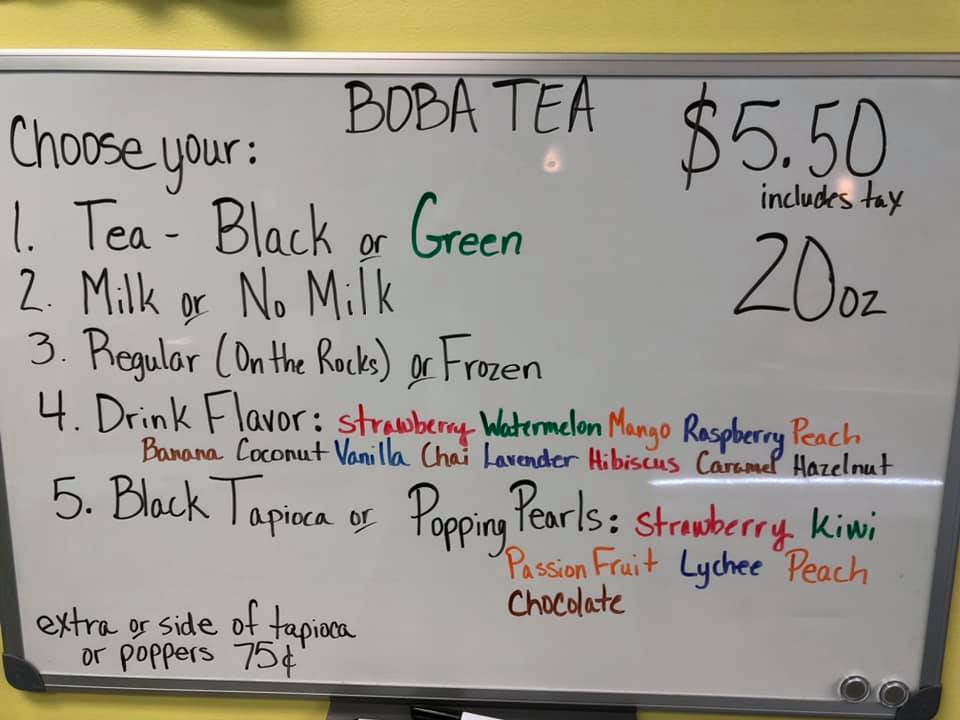 BOBA TEA
$5.50
includes tax
20oz
Choose your:
1. Tea - Black or Green
2. Milk or No Milk
3. Regular (On the Rocks) or Frozen
4. Drink Flavor: strawberry Watermelon Mango Raspberry Peach
Banana Coconut Vanilla Chai Lavender Hibiscus Caramel Hazelnut
5. Black Tapioca or Popping Pearls: strawberry kiwi
Passion Fruit Lychee Peach
Chocolate
extra or side of tapioca
or poppers 75¢